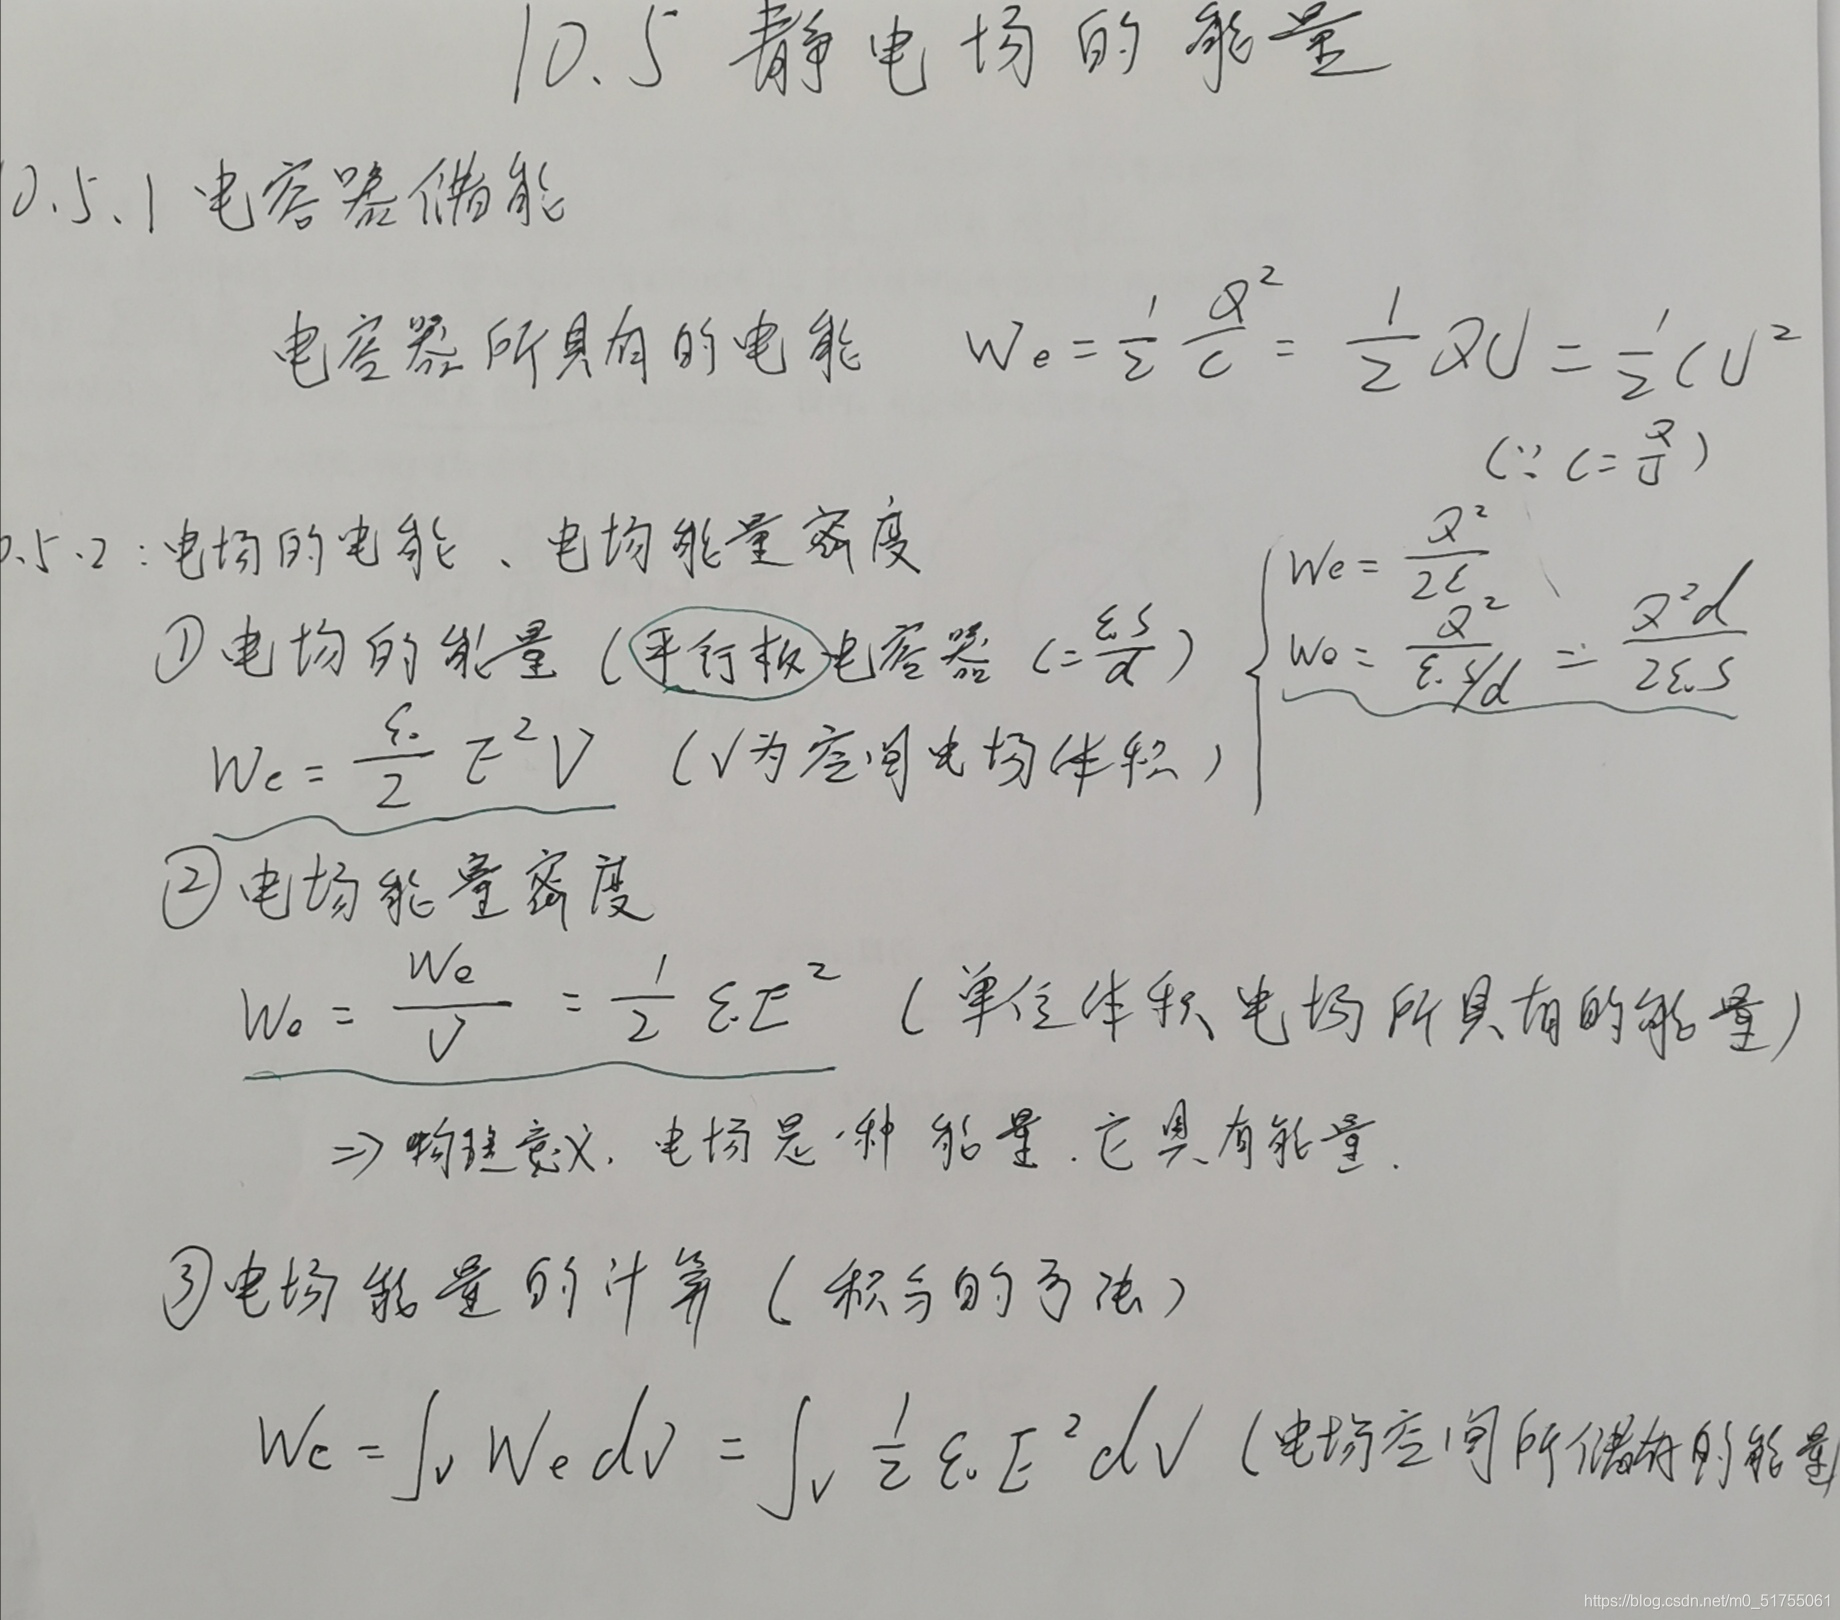 10.5 静电场的能量
10.5.1 电容器储能
电容器所具有的电能 We = 1/2 Q²/C = 1/2 QU = 1/2 CU²
(∵ C = Q/U)
0.5.2:电场的电能、电场能量密度
①电场的能量(平行板电容器 C = ε₀S/d)
We = Q²/2C
We = Q²/ε₀S/d = Q²d/2ε₀S
We = ε₀/2 E²V (V为空间电场体积)
②电场能量密度
We = We/V = 1/2 ε₀E² (单位体积电场所具有的能量)
⇒ 物理意义. 电场是一种能量.它具有能量.
③电场能量的计算(积分的方法)
We = ∫v We dV = ∫v 1/2 ε₀E²dV (电场空间所储存的能量)
https://blog.csdn.net/m0_51755061